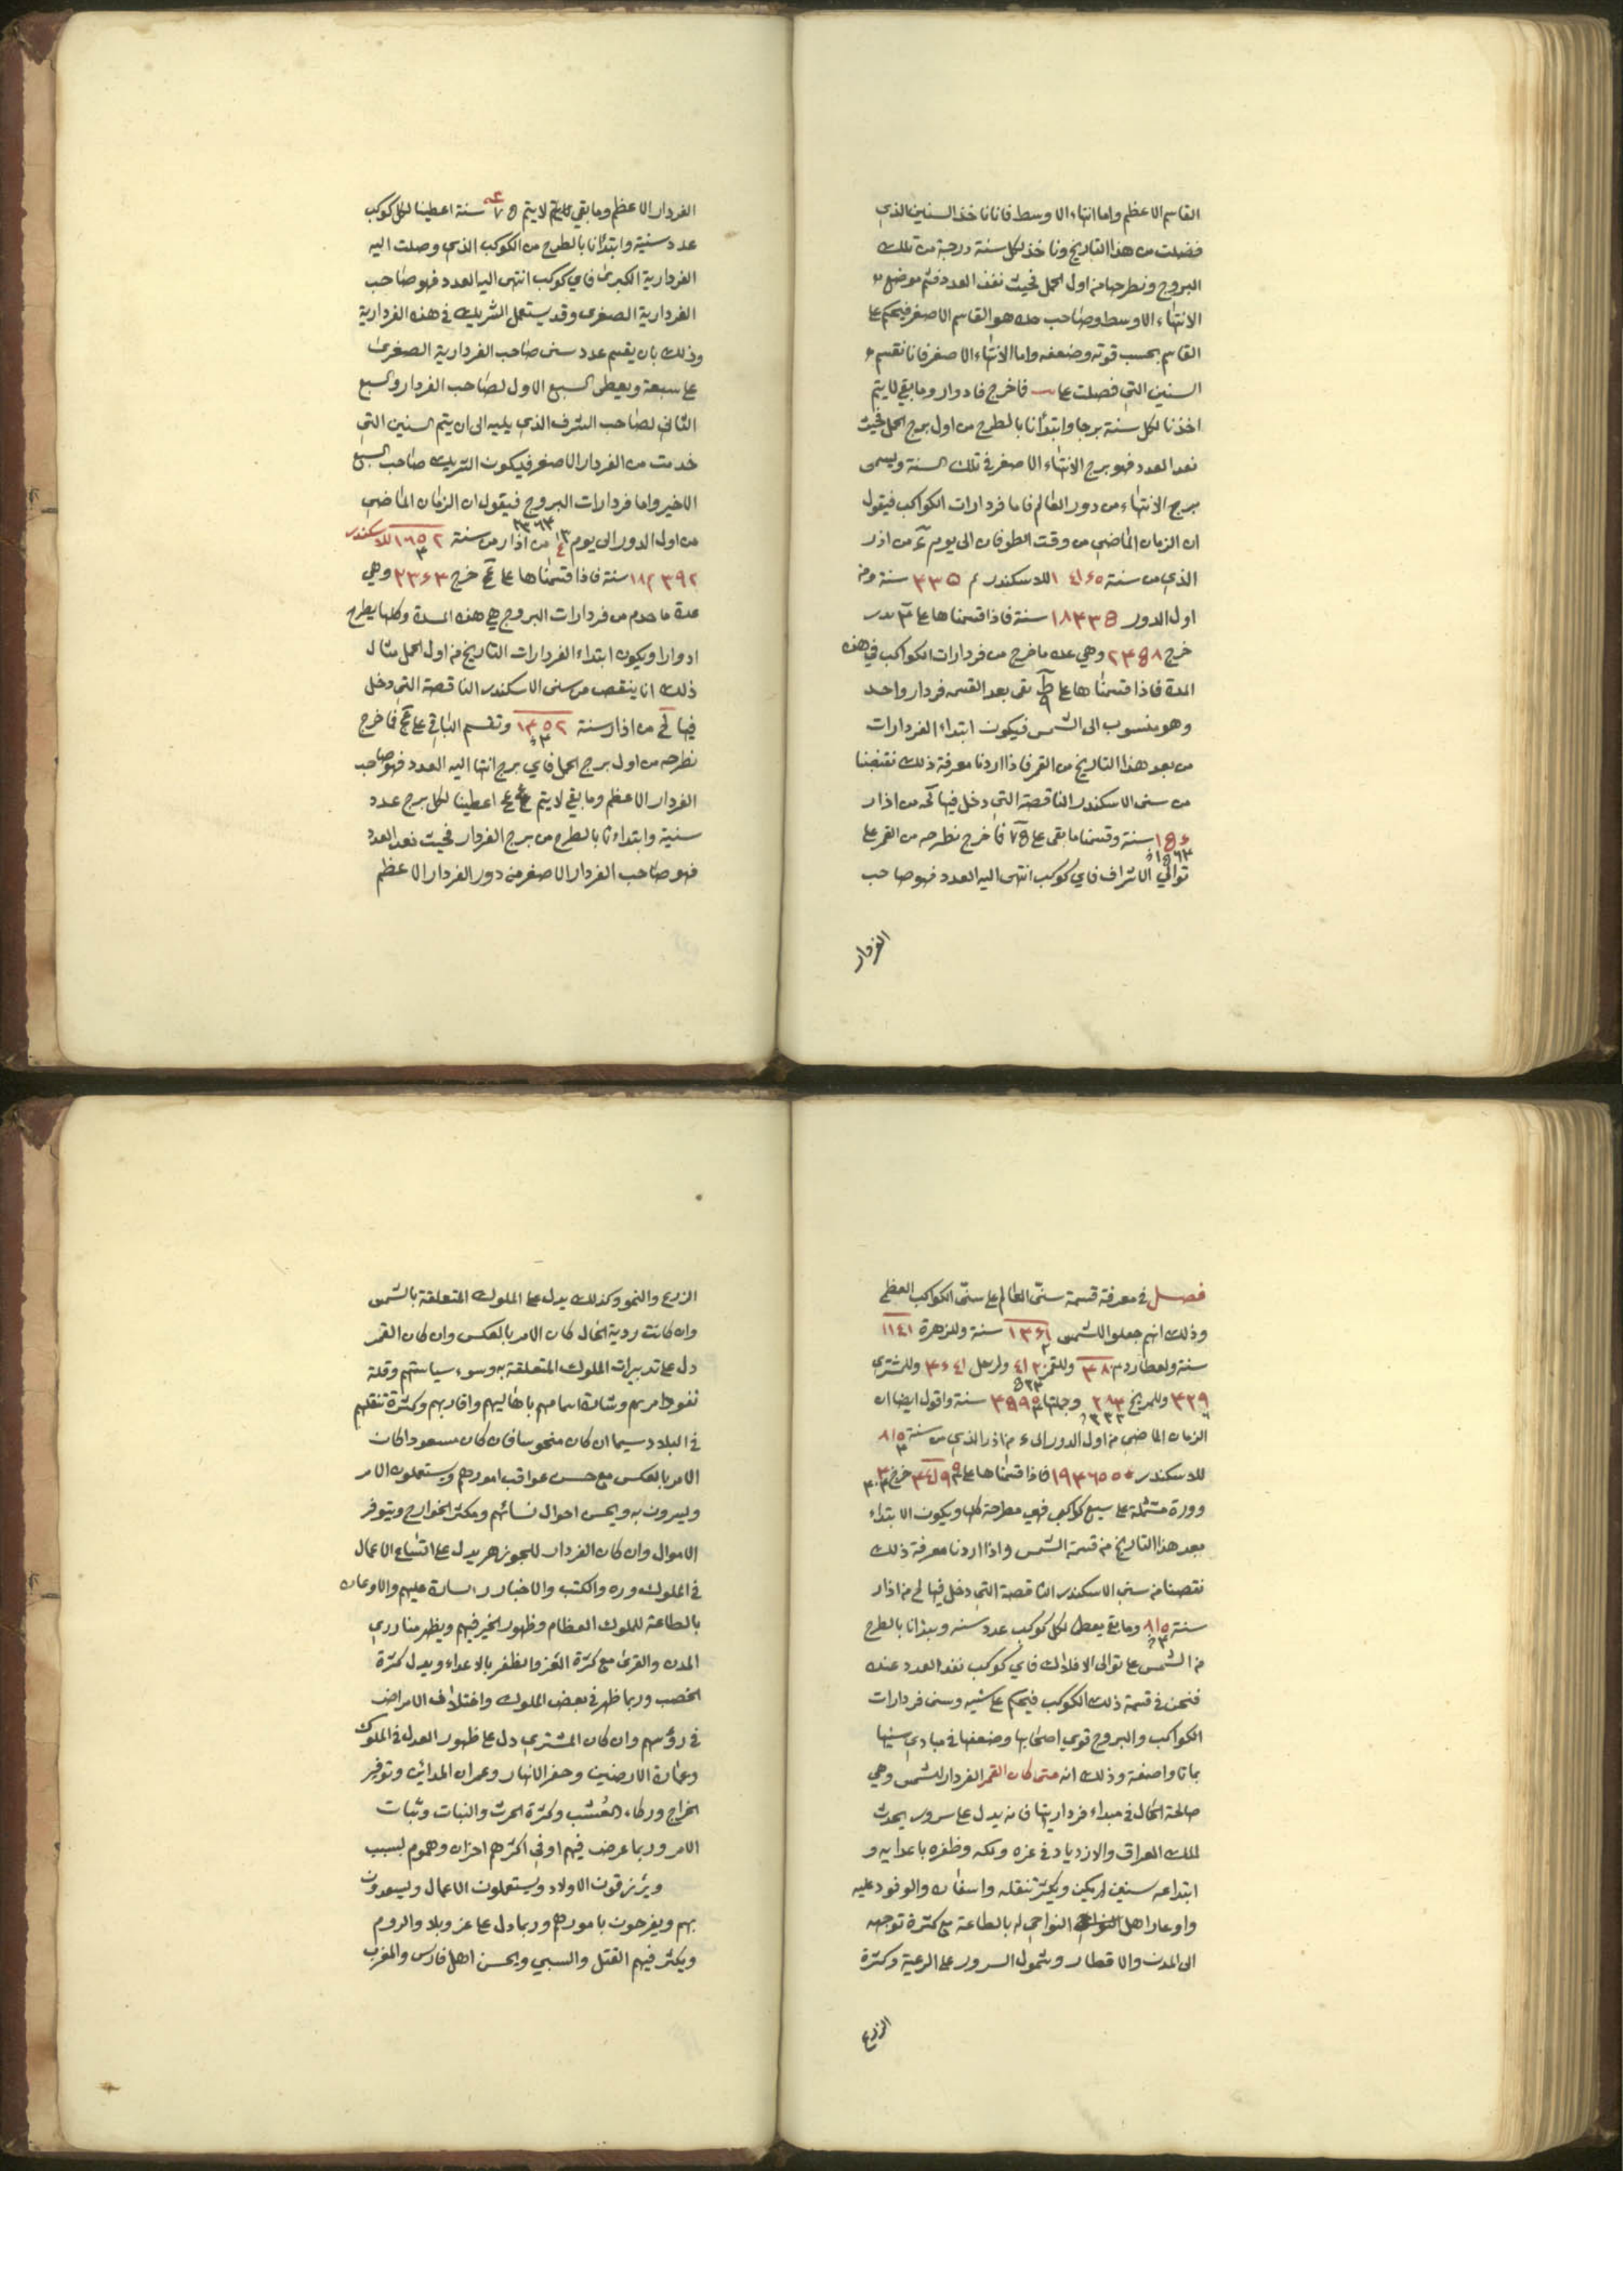 القاسم الاعظم واما انتهاء الاوسط فاناناخذ السنين الذي
فضلت من هذا التاريخ وناخذ لكل سنة درجة من تلك
البروج ونطرحها من اول الحمل فحيث نفذ العدد فثم موضع
الانتهاء الاوسط وصاحب حده هو القاسم الاصغر فيحكم على
القاسم بحسب قوته وضعفه واما الانتهاء الاصغر فانا نقسم
السنين التي فضلت على فاخرج فادوار وما بقي لا يتم
اخذنا لكل سنة برجا وابتدأنا بالطرح من اول برج الحمل فحيث
نفد العدد فهو برج الانتهاء الاصغر في تلك السنة ويسمى
برج الانتهاء من دور العالم فاما فردارات الكواكب فيقول
ان الزمان الماضي من وقت الطوفان الى يوم من اذر
الذي من سنة للاسكندر م ٤٣٣٥ سنة ومن
اول الدور ١٨٣٣٥ سنة فاذا قسمناها على
خرج ٢٣٥٨ وهي عدة ما خرج من فردارات الكواكب في هذه
المدة فاذا قسمناها على ط بقى بعد القسمه فردار واحد
وهو منسوب الى الشمس فيكون ابتداء الفردارات
من بعد هذا التاريخ من القمر فاذا اردنا معرفة ذلك نقصنا
من سنى الاسكندر الناقصة التي دخل فيها كه من اذار
سنة وقسمنا ما بقى على ٧٥ فاخرج نطرحه من القمر على
توالي الاشراف فاي كوكب انتهى اليه العدد فهو صاحب
الفردار
الفردار الاعظم وما بقي لا يتم ٧٥ سنة اعطينا لكل كوكب
عدد سنية وابتدأنا بالطرح من الكوكب الذي وصلت اليه
الفردارية الكبرى فاي كوكب انتهى اليه العدد فهو صاحب
الفردارية الصغرى وقد يستعمل الشريك في هذه الفردارية
وذلك بان يقسم عدد سنى صاحب الفردارية الصغرى
على سبعة ويعطى السبع الاول لصاحب الفردار والسبع
الثاني لصاحب الشرف الذي يليه الى ان يتم السنين التي
خدمت من الفردار الاصغر فيكون الشريك صاحب السبع
الاخير واما فردارات البروج فيقول ان الزمان الماضي
من اول الدور الى يوم من اذار من سنة ١٦٥٢ للاسكندر
١٨٤٣٩٢ سنة فاذا قسمناها على خرج ٢٣٦٣ وهي
عدة ما حدم من فردارات البروج في هذه المدة وكلها يطرح
ادوارا ويكون ابتداء الفردارات التاريخ من اول الحمل مثال
ذلك انا ينقص من سنى الاسكندر الناقصة التي دخل
فيها لح من اذار سنة ١٣٥٢ وتقسم الباقي على فاخرج
نطرحه من اول برج الحمل فاي برج انتها اليه العدد فهو صاحب
الفردار الاعظم وما بقي لا يتم اعطينا لكل برج عدد
سنية وابتداءنا بالطرح من برج الفردار فحيث نفد العدد
فهو صاحب الفردار الاصغر من دور الفردار الاعظم
فصل في معرفة قسمة سنى العالم على سنى الكواكب العظمى
وذلك انهم جعلوا للشمس ١٣٦١ سنة وللزهرة ١١٤١
سنة ولعطارد وللقمر ولزحل وللمشترى
وللمريخ وجملتها سنة واقول ايضا ان
الزمان الماضي من اول الدور الى من اذر الذي من سنة ٨١٥
للاسكندر فاذا قسمناها على خرج
دورة مشتملة على سبع كواكب فهي مطرحة كلها ويكون الابتداء
بعد هذا التاريخ من قسمة الشمس واذا اردنا معرفة ذلك
نقصنا من سنى الاسكندر الناقصة التي دخل فيها لح من اذار
سنة ٨١٥ وما بقي يعطى لكل كوكب عدد سنه ويبدانا بالطرح
من الشمس على توالى الافلاك فاي كوكب نفد العدد عنده
فنحن في قسمة ذلك الكوكب فيحكم على سنيه وسنى فردارات
الكواكب والبروج قوي اصحابها وضعفها في مبادي سنيها
بماتا واصنفة وذلك انه متى كان القمر الفردار للشمس وهي
صالحة الحال في مبداء فرداريتها فانه يدل على سرور يحدث
لملك العراق والازدياد في عزه وملكه وظفره باعدايه و
ابتداعه سنين لم يكن ويكثر تنقله واسفاره والوفود عليه
واوعار اهل النواحي له بالطاعة مع كثرة توجهه
الى المدن والاقطار وشمول السرور على الرعية وكثرة
الزرع
الزرع والنمو وكذلك يدل على الملوك المتعلقة بالشمس
وان كانت ردية الحال كان الامر بالعكس وان كان القمر
دل على تدبيرات الملوك المتعلقة به وسوء سياستهم وقلة
نفوذ امرهم وشدة اهتمامهم باهاليهم واقاربهم وكثرة تنقلهم
في البلاد سيما ان كان منحوسا فان كان مسعودا كان
الامر بالعكس مع حسن عواقب امورهم ويستعملون الامر
ويسرون به ويحسن احوال نسائهم ويكثر الخوارج ويتوفر
الاموال وان كان الفردار للجوزهر يدل على اتساع الاعمال
في الملوك وره والكتب والاخبار السارة عليهم والاوعان
بالطاعة للملوك العظام وظهور الخير فيهم ويظهر منا دري
المدن والقرى مع كثرة العز والظفر بالاعداء ويدل كثرة
الخصب وربما ظهر في بعض الملوك واختلاف الامراض
في رؤسهم وان كان المشتري دل على ظهور العدل في الملوك
وعمارة الارضين وحفر الانهار وعمران المدائن وتوفير
الخراج وزكاء العشب وكثرة الحرث والنبات وثبات
الامر وربما عرض فيهم اوفي اكثرهم احزان وهموم لسبب
ويرزقون الاولاد ويستعملون الاعمال ويسعدون
بهم ويفرحون بامورهم وربما دل على عز وبلاد والروم
ويكثر فيهم القتل والسبي ويحسن اهل فارس والمغرب